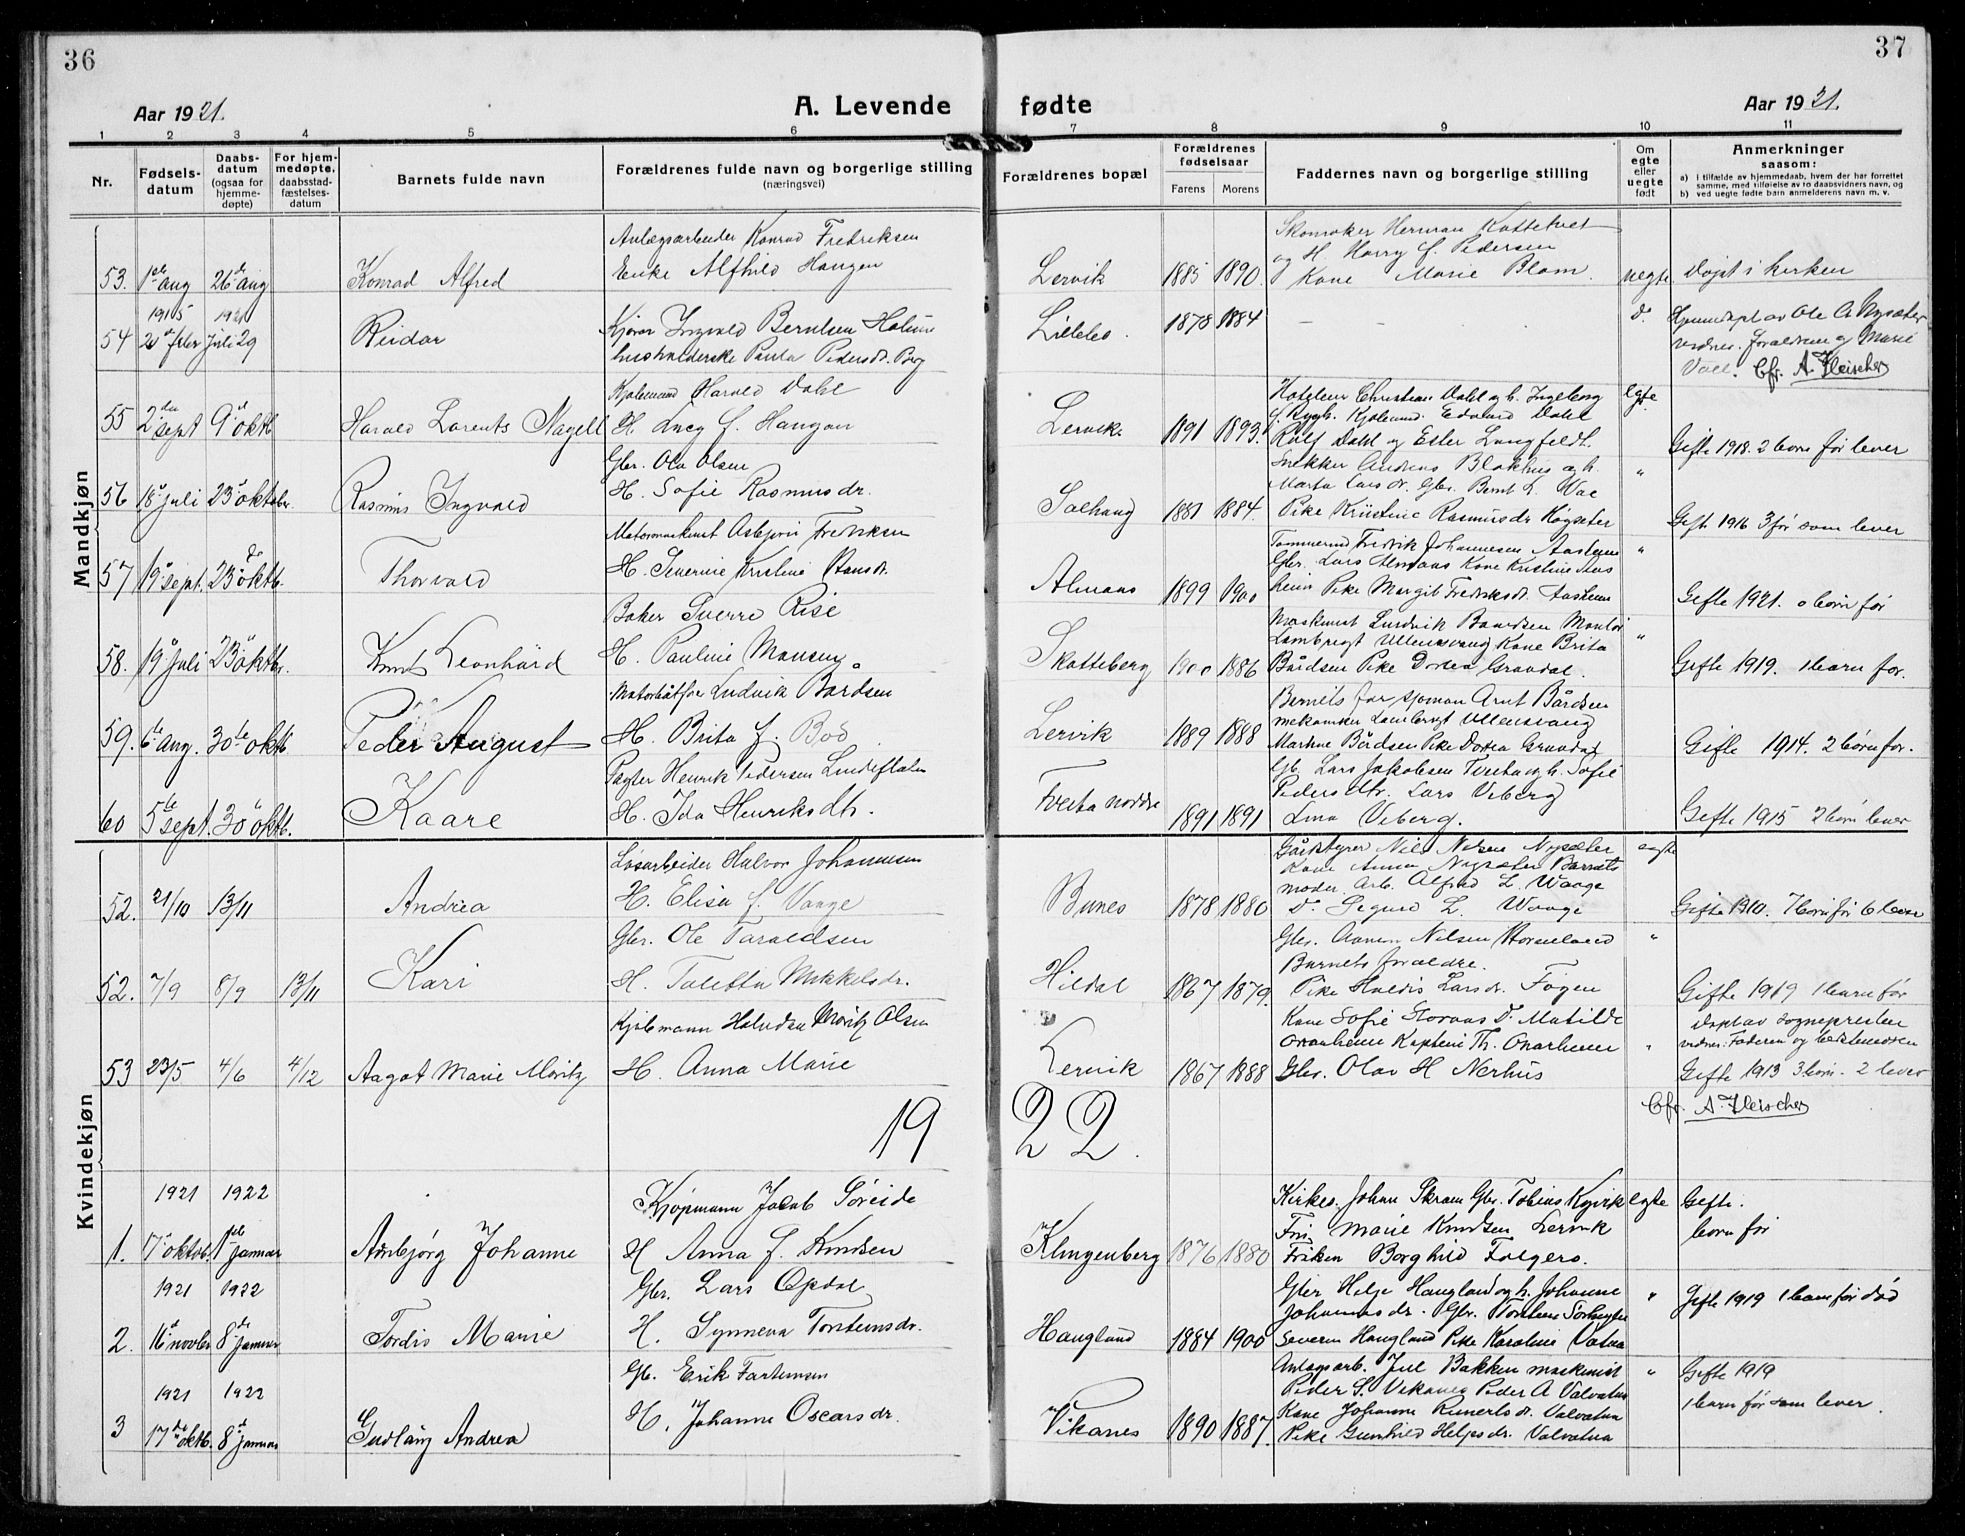 36
37
Aar 1921.
A. Levende fødte
Aar 1921.
1 2 3 4 5 6 7 8 9 10 11
Nr.
Fødselsdatum
Daabsdatum (ogsaa for hjemmedøpte)
For hjemmedøpte, daabsstadfæstelsesdatum
Barnets fulde navn
Forældrenes fulde navn og borgerlige stilling (næringsvei)
Forældrenes bopæl
Forældrenes fødselsaar
Farens Morens
Faddernes navn og borgerlige stilling
Om egte eller uegte født
Anmerkninger
saasom:
a) i tilfælde av hjemmedaab, hvem der har forrettet samme, med tilføielse av to daabsvidners navn, og
b) ved uegte fødte barn anmelderens navn m. v.
Mandkjøn
Anlægsarbeider Konrad Fredriksen
Enke Alfhild Haugen
53. 1ste aug 26de aug
Konrad Alfred
Lervik 1885 1890.
Skomaker Herman
og H. Harry f. Pedersen
Kone Marie Blom
uegte
døpt i kirken
1915 1921
54 juli 29
Reidar
Kjører Ingvald Berntsen
husholderske Paula Pedersdr. Berg
Lillebo. 1878 1884
— — —
d.
Hjemmedøpt av Ole A Nysæter
vidner. forældrene og Marie
Cfr. A. Fleischer
Kjølemand Harald Dahl
55 2den sept 9de oktb
Harald Lorents Nagell
H. Lucy f. Haugan
Lervik. 1891 1893.
Hoteleier Christian Dahl og h. Ingeborg
Edvard Dahl
Rolf Dahl og Ester Langfeldt.
egte
Gifte 1918. 2 born før lever
Gbr. Ola Olsen
56 18de juli 23de oktober
Rasmus Ingvald
H. Sofie Rasmusdr.
1881 1884.
Snekker Andreas Blokhus og h.
Marta Larsdr. Gbr. Bernt L.
Pike Kristine Rasmusdr
"
Gift 1916 3 før som lever
Asbjørn Fredriksen
57 19de sept. 23de oktb.
Thorvald
H. Severine Kristine Hansdr.
Almaas 1899 1900
Fredrik Johannesen Aasheim
Gbr. Lars Almaas Kone Kristine Aas
heim Pike Margit Fredriksdr. Aasheim
"
Gifte 1921. 0 born før
Baker Sverre Rise
58. 19de juli 23de oktbr.
Knut Leonhard
H. Pauline Monsen.
Skatteberg 1900 1886
Maskinist Ludvik Baardsen Montør
Lambregt Ullensvang Kone Brita
Bårdsen Pike Dortea Graudal.
"
Gifte 1919. 1 barn før.
Motorbåtfør Ludvik Bardsen
59. 6te aug. 30te oktb
Peder August
H. Brita f. Boo
Lervik 1889 1888
Barnets far sjøman Arnt Bårdsen
mekaniker Lambregt Ullensvang
Martine Bårdsen Pike Dortea Graudal
Gifte 1914. 2 børn før.
Pagter Henrik Pedersen Lindeflaten
60 5te sept. 30te oktb.
Kaare
H. Ida Henriksdtr.
Tveita nordre 1891 1891
Gb. Lars Jakobsen Tveita og h. Sofie
Pedersdtr. Lars Veberg
Lina Veberg.
Gifte 1915 2 børn lever
Kvindekjøn
Løsarbeider Halvor Johannesen
52. 21/10 13/11
Andrea
H. Elisa f. Vaage
Bunes 1878 1880
Gårdstyrer Nils Nilsen Nysæter
Kone Anna Nysæter Barnets
moder. Arb. Alfred L. Waage
D. Sigurd L. Waage
egte
Gifte 1910. 7 born før 6 lever
Gbr. Ole Taraldsen
52. 7/9 8/9 13/11
Kari
H. Toletta Mikkelsdr.
Hildal 1867 1879.
Gbr. Nilsen
Barnets forældre.
Pike Haldis Larsdr. Fögen
"
Gifte 1919 1 barn før
Kjølemann Moritz Olsen
53 23/5 4/6 4/12
Aagot Marie Moritz
H. Anna Marie
Lervik 1867 1888
Kone Sofie Storaas D. Matilde
Onarheim Kaptein Th. Onarheim
Gbr. Olav H Nerhus
"
døpt av sogneprester
vidner: Faderen og bedstemoren
Gifte 1913 3 born. 2 lever
Cfr. A. Fleischer
19
22.
1921 1922
Kjøpmann Jacob Søreide
1. 7de oktob. 1ste januar
Arnbjørg Johanne
H Anna f. Knudsen
Klingenberg 1876 1880
Kirkes. Johan Skram Gbr. Tobias Kyvik
Fru Marie Knudsen Lervik
Frøken Borghild Folgerø.
egte
Gifte.
born før
1921 1922
Gbr. Lars Opdal
2. 16de novbr 8de januar
Tordis Marie
H. Synneva Torsteinsdr.
Haugland 1884 1900
Gbr Helje Haugland og h. Johanne
Johannesdr. Gbr. Torstein
Severin Haugland Pike Karoline Valvatna
"
Gifte 1919 1 barn før død
1921 1922
Gb. Erik
3 17de oktb. 8de januar
Gudlaug Andrea
H. Johanne Oscarsdr.
Vikanes 1890 1887.
Anlagsarb. Jul Bakken maskinist
Peder S. Vikanes Peder A Valvatna
Kone Johanne Valvatna
Pike Gunhild Heljesdr. Valvatna
"
Gifte 1919
1 barn før som lever.